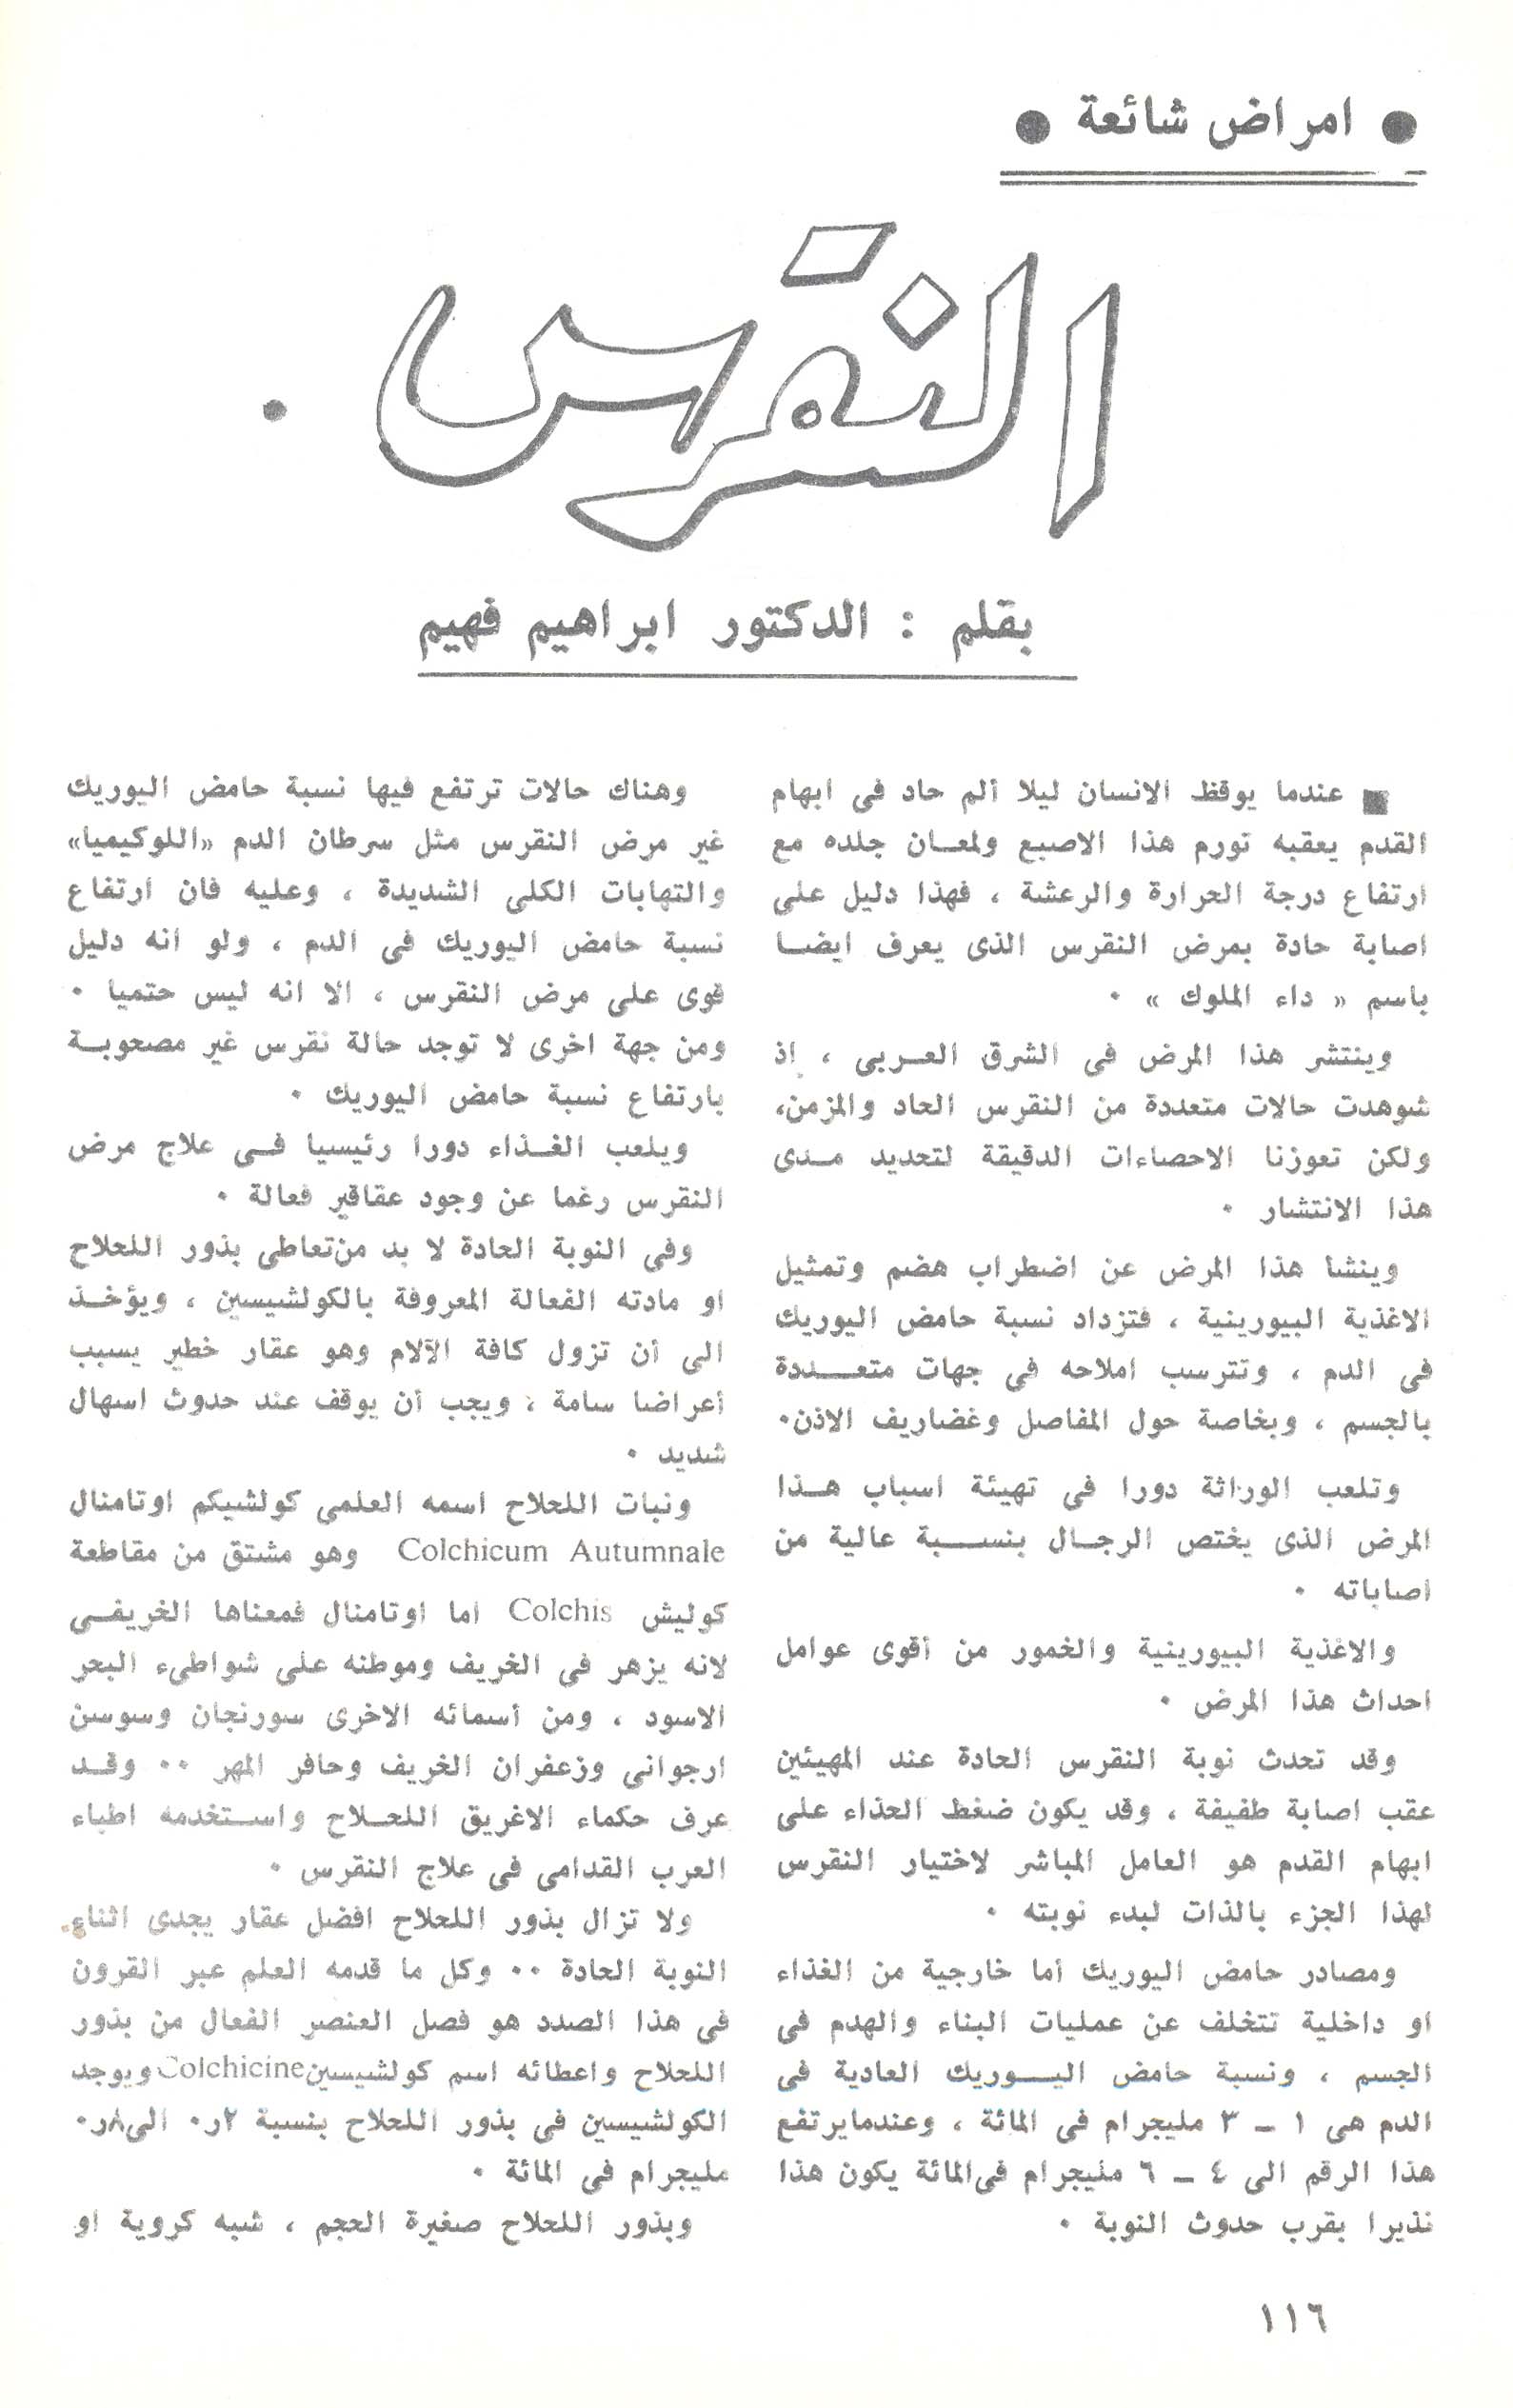 ● امراض شائعة ●
النقرس
بقلم : الدكتور ابراهيم فهيم
■ عندما يوقظ الانسان ليلا ألم حاد فى ابهام
القدم يعقبه تورم هذا الاصبع ولمعـان جلده مع
ارتفاع درجة الحرارة والرعشة ، فهذا دليل على
اصابة حادة بمرض النقرس الذى يعرف ايضـا
باسم « داء الملوك » ٠
وينتشر هذا المرض فى الشرق العـربى ، إذ
شوهدت حالات متعددة من النقرس الحاد والمزمن،
ولكن تعوزنا الاحصاءات الدقيقة لتحديد مـدى
هذا الانتشار ٠
وينشا هذا المرض عن اضطراب هضم وتمثيل
الاغذية البيورينية ، فتزداد نسبة حامض اليوريك
فى الدم ، وتترسب املاحه فى جهات متعـــددة
بالجسم ، وبخاصة حول المفاصل وغضاريف الاذن٠
وتلعب الوراثة دورا فى تهيئة اسباب هـذا
المرض الذى يختص الرجـال بنســـبة عالية من
اصاباته ٠
والاغذية البيورينية والخمور من أقوى عوامل
احداث هذا المرض ٠
وقد تحدث نوبة النقرس الحادة عند المهيئين
عقب اصابة طفيفة ، وقد يكون ضغط الحذاء على
ابهام القدم هو العامل المباشر لاختيار النقرس
لهذا الجزء بالذات لبدء نوبته ٠
ومصادر حامض اليوريك أما خارجية من الغذاء
او داخلية تتخلف عن عمليات البناء والهدم فى
الجسم ، ونسبة حامض اليـــوريك العادية فى
الدم هى ١ ـ ٣ مليجرام فى المائة ، وعندمايرتفع
هذا الرقم الى ٤ ـ ٦ مليجرام فىالمائة يكون هذا
نذيرا بقرب حدوث النوبة ٠
وهناك حالات ترتفع فيها نسبة حامض اليوريك
غير مرض النقرس مثل سرطان الدم «اللوكيميا»
والتهابات الكلى الشديدة ، وعليه فان ارتفاع
نسبة حامض اليوريك فى الدم ، ولو انه دليل
قوى على مرض النقرس ، الا انه ليس حتميا ٠
ومن جهة اخرى لا توجد حالة نقرس غير مصحوبـة
بارتفاع نسبة حامض اليوريك ٠
ويلعب الغـذاء دورا رئيسيا فـى علاج مرض
النقرس رغما عن وجود عقاقير فعالة ٠
وفى النوبة الحادة لا بد من تعاطى بذور اللحلاح
او مادته الفعالة المعروفة بالكولشيسين ، ويؤخـذ
الى أن تزول كافة الآلام وهو عقار خطير يسبب
أعراضا سامة ، ويجب أن يوقف عند حدوث اسهال
شديد ٠
ونبات اللحلاح اسمه العلمى كولشيكم اوتامنال
Colchicum Autumnale وهو مشتق من مقاطعة
كوليش Colchis اما اوتامنال فمعناها الخريفـى
لانه يزهر فى الخريف وموطنه على شواطىء البحر
الاسود ، ومن أسمائه الاخرى سورنجان وسوسن
ارجوانى وزعفران الخريف وحافر المهر ٠٠ وقـد
عرف حكماء الاغريق اللحـلاح واسـتخدمه اطباء
العرب القدامى فى علاج النقرس ٠
ولا تزال بذور اللحلاح افضل عقار يجدى اثناء
النوبة الحادة ٠٠ وكل ما قدمه العلم عبر القرون
فى هذا الصدد هو فصل العنصر الفعال من بذور
اللحلاح واعطائه اسم كولشيسين Colchicine ويوجد
الكولشيسين فى بذور اللحلاح بنسبة ٢ر٠ الى٨ر٠
مليجرام فى المائة ٠
وبذور اللحلاح صغيرة الحجم ، شبه كروية او
١١٦